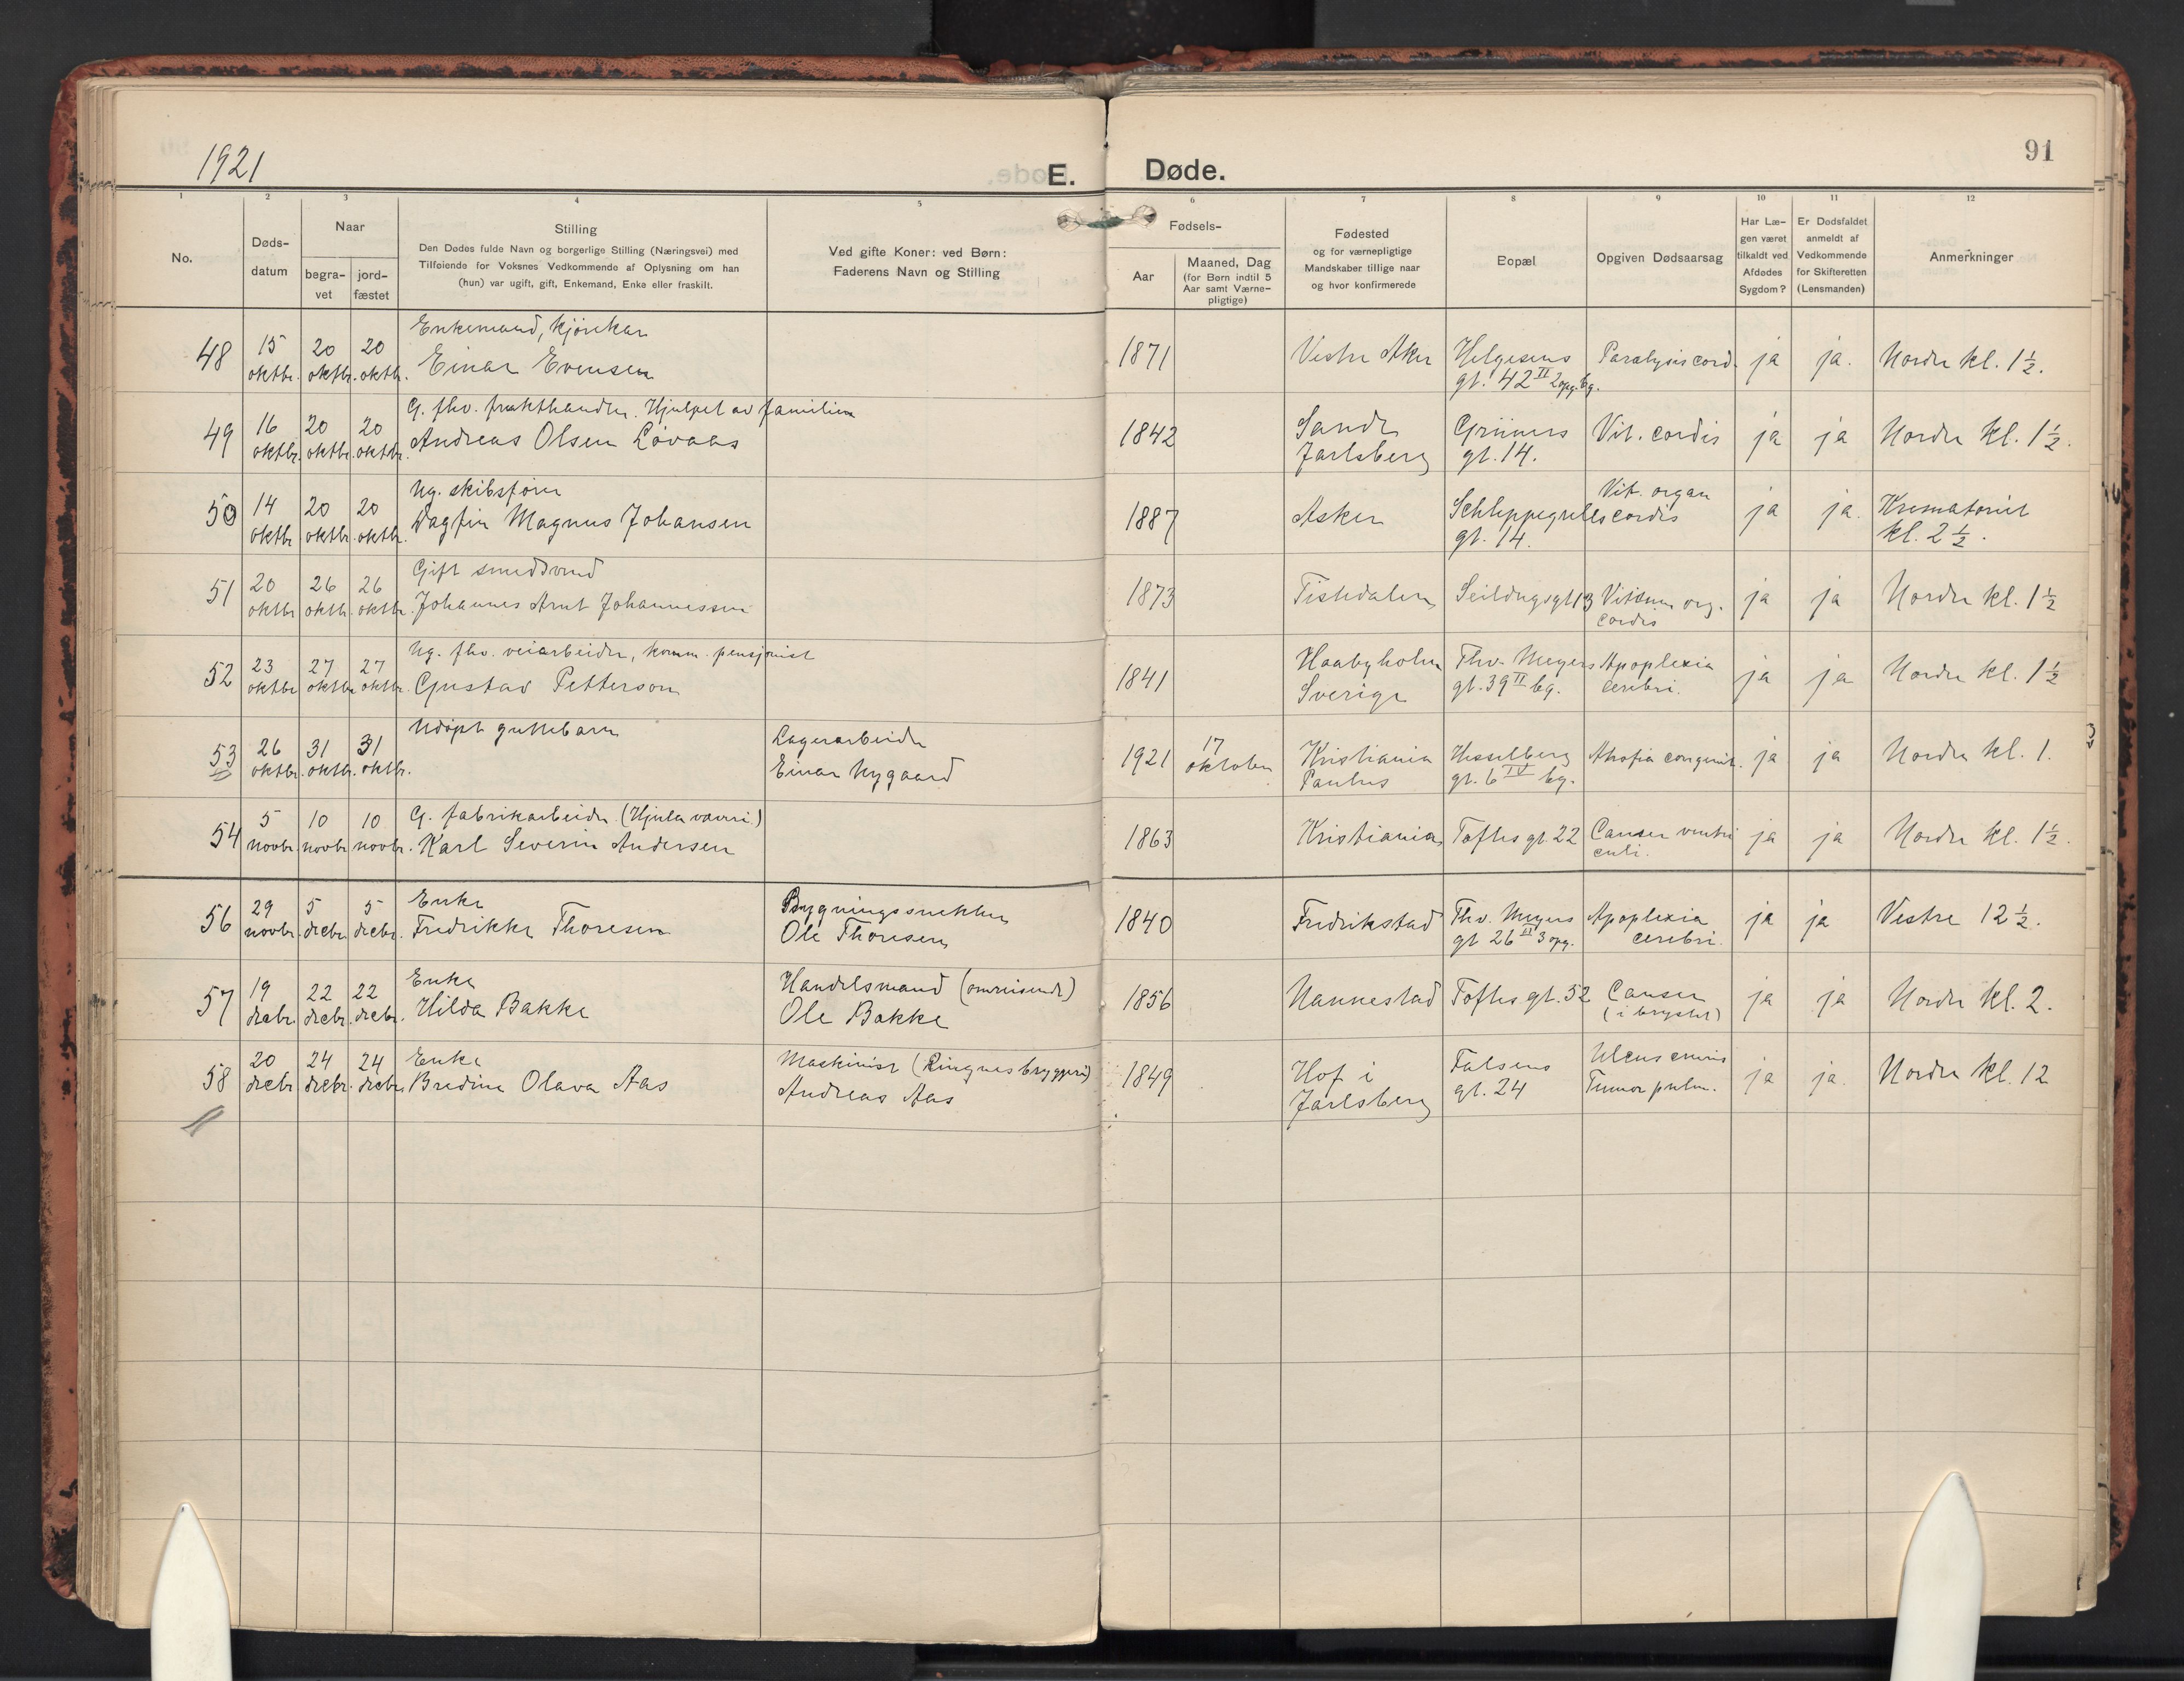 1921
E. Døde.
91
1 2 3 4 5 6 7 8 9 10 11 12
No.
Døds-
datum
Naar
begra-
vet
jord-
fæstet
Stilling
Den Dødes fulde Navn og borgerlige Stilling (Næringsvei) med
Tilføiende for Voksnes Vedkommende af Oplysning om han
(hun) var ugift, gift, Enkemand, Enke eller fraskilt.
Ved gifte Koner: ved Børn:
Faderens Navn og Stilling
Fødsels-
Aar
Maaned, Dag
(for Børn indtil 5
Aar samt Værne-
pligtige)
Fødested
og for værnepligtige
Mandskaber tillige naar
og hvor konfirmerede
Bopæl
Opgiven Dødsaarsag
Har Læ-
gen været
tilkaldt ved
Afdødes
Sygdom?
Er Dødsfaldet
anmeldt af
Vedkommende
for Skifteretten
(Lensmanden)
Anmerkninger
Enkemand, kjørekar
48 15 20 20 Einar Evensen 1871 Vestre Aker Helgesens Paralysis cord. ja ja. Nordre kl. 1½.
oktbr. oktbr. oktbr. gt. 42 II 2 opg. bg.
G. fhv. frukthandler. Hjulpet av familien
49 16 20 20 Andreas Olsen Løvaas 1842 Sande Grüners Vit. cordis ja ja Nordre kl. 1½.
oktbr. oktbr. oktbr. Jarlsberg gt. 14.
Ug. skibsfører Vit. organ
50 14 20 20 Dagfin Magnus Johansen 1887 Asker Schleppegrells cordis ja ja. Krematoriet
oktbr oktbr. oktbr. gt. 14. kl. 2½.
Gift smedsvend
51 20 26 26 Johannes Arnt Johannessen 1873 Tistedalen Seildugsgt 13 Vitium org. ja ja Nordre kl. 1½
oktbr oktbr. oktbr. cordis
Ug. fhv. veiarbeider, komm. pensjonist
52 23 27 27 Gustav Petterson 1841 Haabyholm Thv. Meyers Apoplexia ja ja Nordre kl. 1½
oktbr oktbr oktbr. Sverige gt. 39 II bg. cerebri.
Udøpt guttebarn Lagerarbeider
53 26 31 31 Einar Nygaard 1921 17 Kristiania Hesselberg Atrofia congenit. ja ja Nordre kl. 1.
oktbr. oktbr. oktbr. oktober Paulus gt. 6 IV bg.
G. fabrikarbeider (Hjula væveri)
54 5 10 10 Karl Severin Andersen 1863 Kristiania Toftes gt. 22 Cancer ventri ja ja Nordre kl. 1½.
novbr. novbr novbr. culi.
Enke Bygningssnekker
56 29 5 5 Fredrikke Thoresen Ole Thoresen 1840 Fredrikstad Thv. Meyers Apoplexia ja ja Vestre 12½.
novbr. decbr. decbr. gt 26 II 3 opg. cerebri.
Enke Handelsmand (omreisende)
57 19 22 22 Hilda Bakke Ole Bakke 1856 Nannestad Toftes gt. 52 Cancer ja ja Nordre kl. 2.
decbr. decbr. decbr. (i brystet)
Enke Maskinist (Ringnes bryggeri) Ulcus cruris
58 20 24 24 Bredine Olava Aas Andreas Aas 1849 Hof i Falsens Tumor pulm. ja ja. Nordre kl. 12
decbr. decbr. decbr. Jarlsberg gt. 24